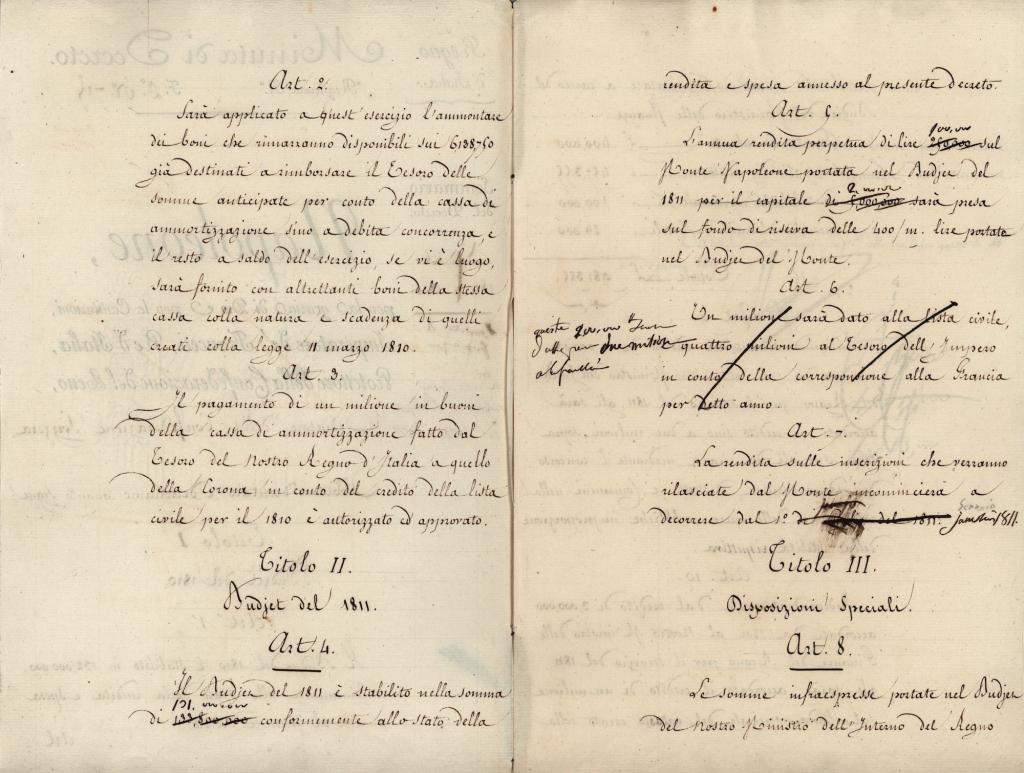 Art. 2.
Sarà applicato a quest'esercizio l'ammontare
dei boni che rimarranno disponibili sui 6138750
già destinati a rimborsare il Tesoro delle
somme anticipate per conto della cassa di
ammortizzazione sino a debita concorrenza, e
il resto a saldo dell'esercizio, se vi è luogo,
sarà fornito con altrettanti boni della stessa
cassa colla natura e scadenza di quelli
creati colla legge 11 marzo 1810.
Art. 3.
Il pagamento di un milione in buoni
della cassa di ammortizzazione fatto dal
Tesoro del Nostro Regno d'Italia a quello
della Corona in conto del credito della lista
civile per il 1810 è autorizzato ed approvato.
Titolo II.
Budjet del 1811.
Art. 4.
Il Budjet del 1811 è stabilito nella somma
131. 000.000
di 133 800 000 conformemente allo stato della
rendita e spesa annesso al presente decreto.
Art. 5.
100,000
L'annua rendita perpetua di lire 250 000 sul
Monte Napoleone portata nel Budjet del
2. 000.000
1811 per il capitale di 5,000,000 sarà presa
sul fondo di riserva delle 400/m. lire portate
nel Budjet del Monte.
Art. 6.
Un milione sarà dato alla lista civile,
queste
due milioni
quattro milioni al Tesoro dell'Impero
in conto della corresponsione alla Francia
per detto anno.
Art. 7.
La rendita sulle inscrizioni che verranno
rilasciate dal Monte incomincierà a
decorrere dal 1º di del 1811. 1811.
Titolo III.
Disposizioni Speciali.
Art. 8.
Le somme infraespresse portate nel Budjet
del Nostro Ministro dell'Interno del Regno